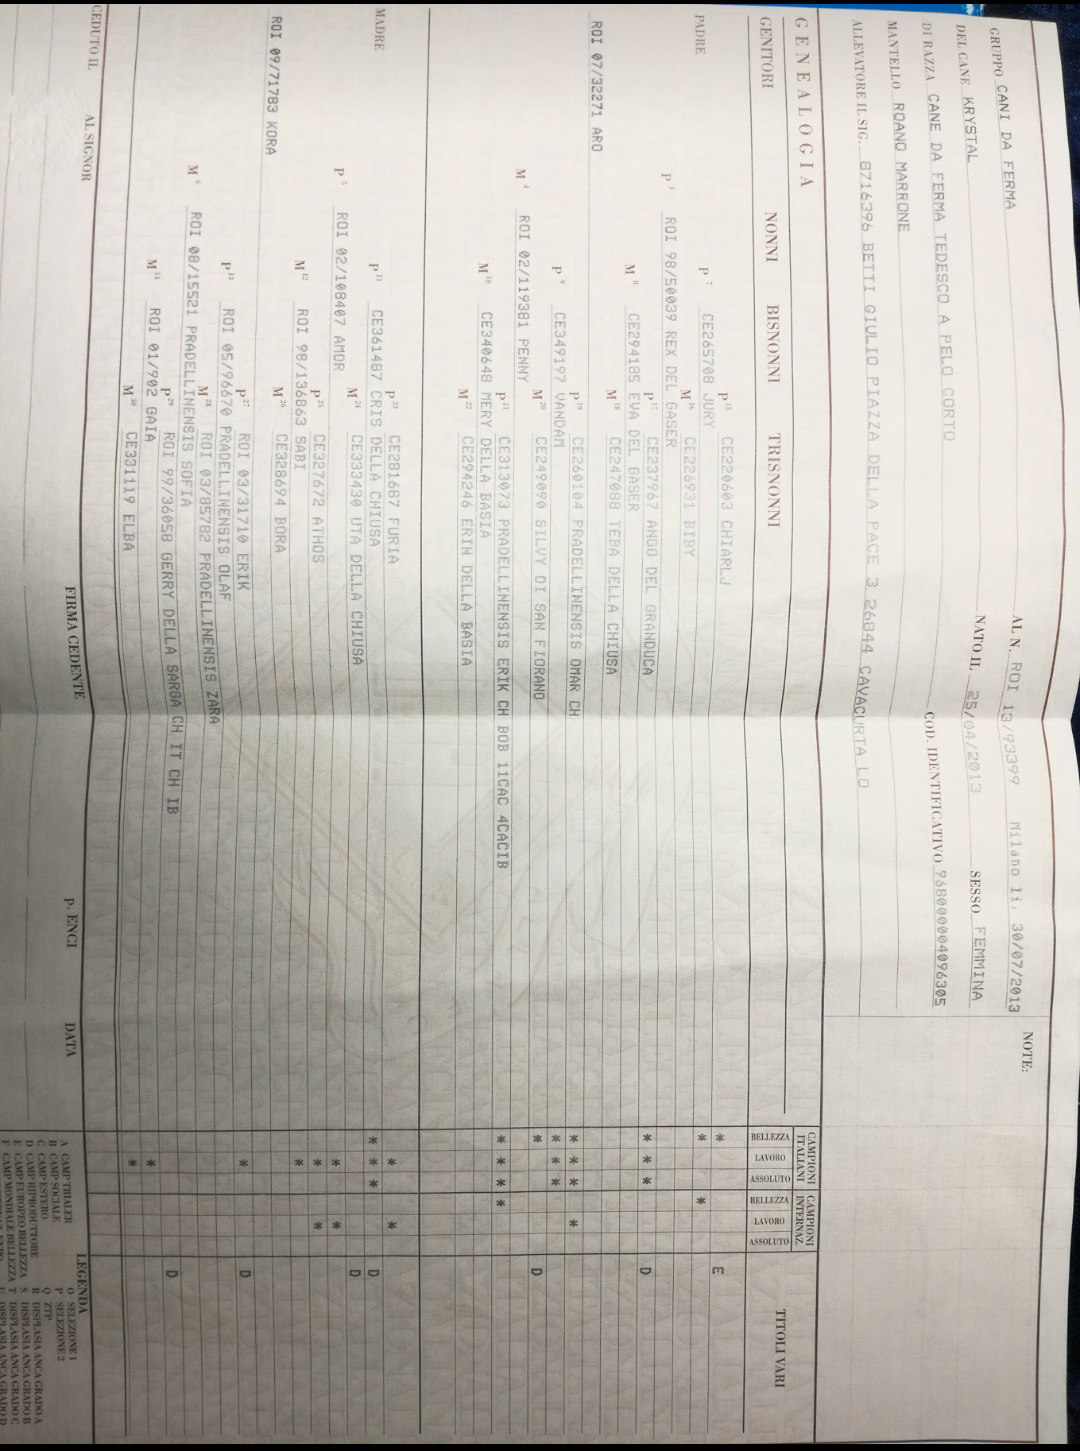 GRUPPO CANI DA FERMA AL N. ROI 13/93399 Milano li, 30/07/2013 NOTE:
DEL CANE KRYSTAL NATO IL 25/04/2013 SESSO FEMMINA
DI RAZZA CANE DA FERMA TEDESCO A PELO CORTO COD. IDENTIFICATIVO 968000004096305
MANTELLO ROANO MARRONE
ALLEVATORE IL SIG. 8716396 BETTI GIULIO PIAZZA DELLA PACE 3 26844 CAVACURTA LO
GENEALOGIA CAMPIONI ITALIANI CAMPIONI INTERNAZ.
GENITORI NONNI BISNONNI TRISNONNI BELLEZZA LAVORO ASSOLUTO BELLEZZA LAVORO ASSOLUTO TITOLI VARI
P 15 CE220603 CHIARLJ * E
PADRE P 7 CE265708 JURY * *
M 16 CE226931 BIBY
P 3 ROI 98/50039 REX DEL GASER
P 17 CE237967 ANGO DEL GRANDUCA * * * D
M 8 CE294185 EVA DEL GASER
M 18 CE247088 TEBA DELLA CHIUSA
ROI 07/32271 ARO
P 19 CE260104 PRADELLINENSIS OMAR CH * * * *
P 9 CE349197 VANDAM * * *
M 20 CE249090 SILVY DI SAN FIORANO * D
M 4 ROI 02/119381 PENNY
P 21 CE313073 PRADELLINENSIS ERIK CH BOB 11CAC 4CACIB * * * *
M 10 CE340648 MERY DELLA BASIA
M 22 CE294246 ERIN DELLA BASIA
P 23 CE281687 FURIA * *
MADRE P 11 CE361487 CRIS DELLA CHIUSA * * * D
M 24 CE333430 UTA DELLA CHIUSA D
P 5 ROI 02/108407 AMOR * *
P 25 CE327672 ATHOS * *
M 12 ROI 98/136863 SABI *
M 26 CE328694 BORA
ROI 09/71783 KORA
P 27 ROI 03/31710 ERIK * D
P 13 ROI 05/96670 PRADELLINENSIS OLAF
M 28 ROI 03/85782 PRADELLINENSIS ZARA
M 6 ROI 08/15521 PRADELLINENSIS SOFIA
P 29 ROI 99/36058 GERRY DELLA SARGA CH IT CH IB D
M 14 ROI 01/902 GAIA *
M 30 CE331119 ELBA *
CEDUTO IL AL SIGNOR FIRMA CEDENTE P. ENCI DATA
LEGENDA
A CAMP TRIALER O SELEZIONE 1
B CAMP SOCIALE P SELEZIONE 2
C CAMP ESTERO Q ZTP
D CAMP RIPRODUTTORE R DISPLASIA ANCA GRADO A
E CAMP EUROPEO BELLEZZA S DISPLASIA ANCA GRADO B
F CAMP MONDIALE BELLEZZA T DISPLASIA ANCA GRADO C
U DISPLASIA ANCA GRADO D